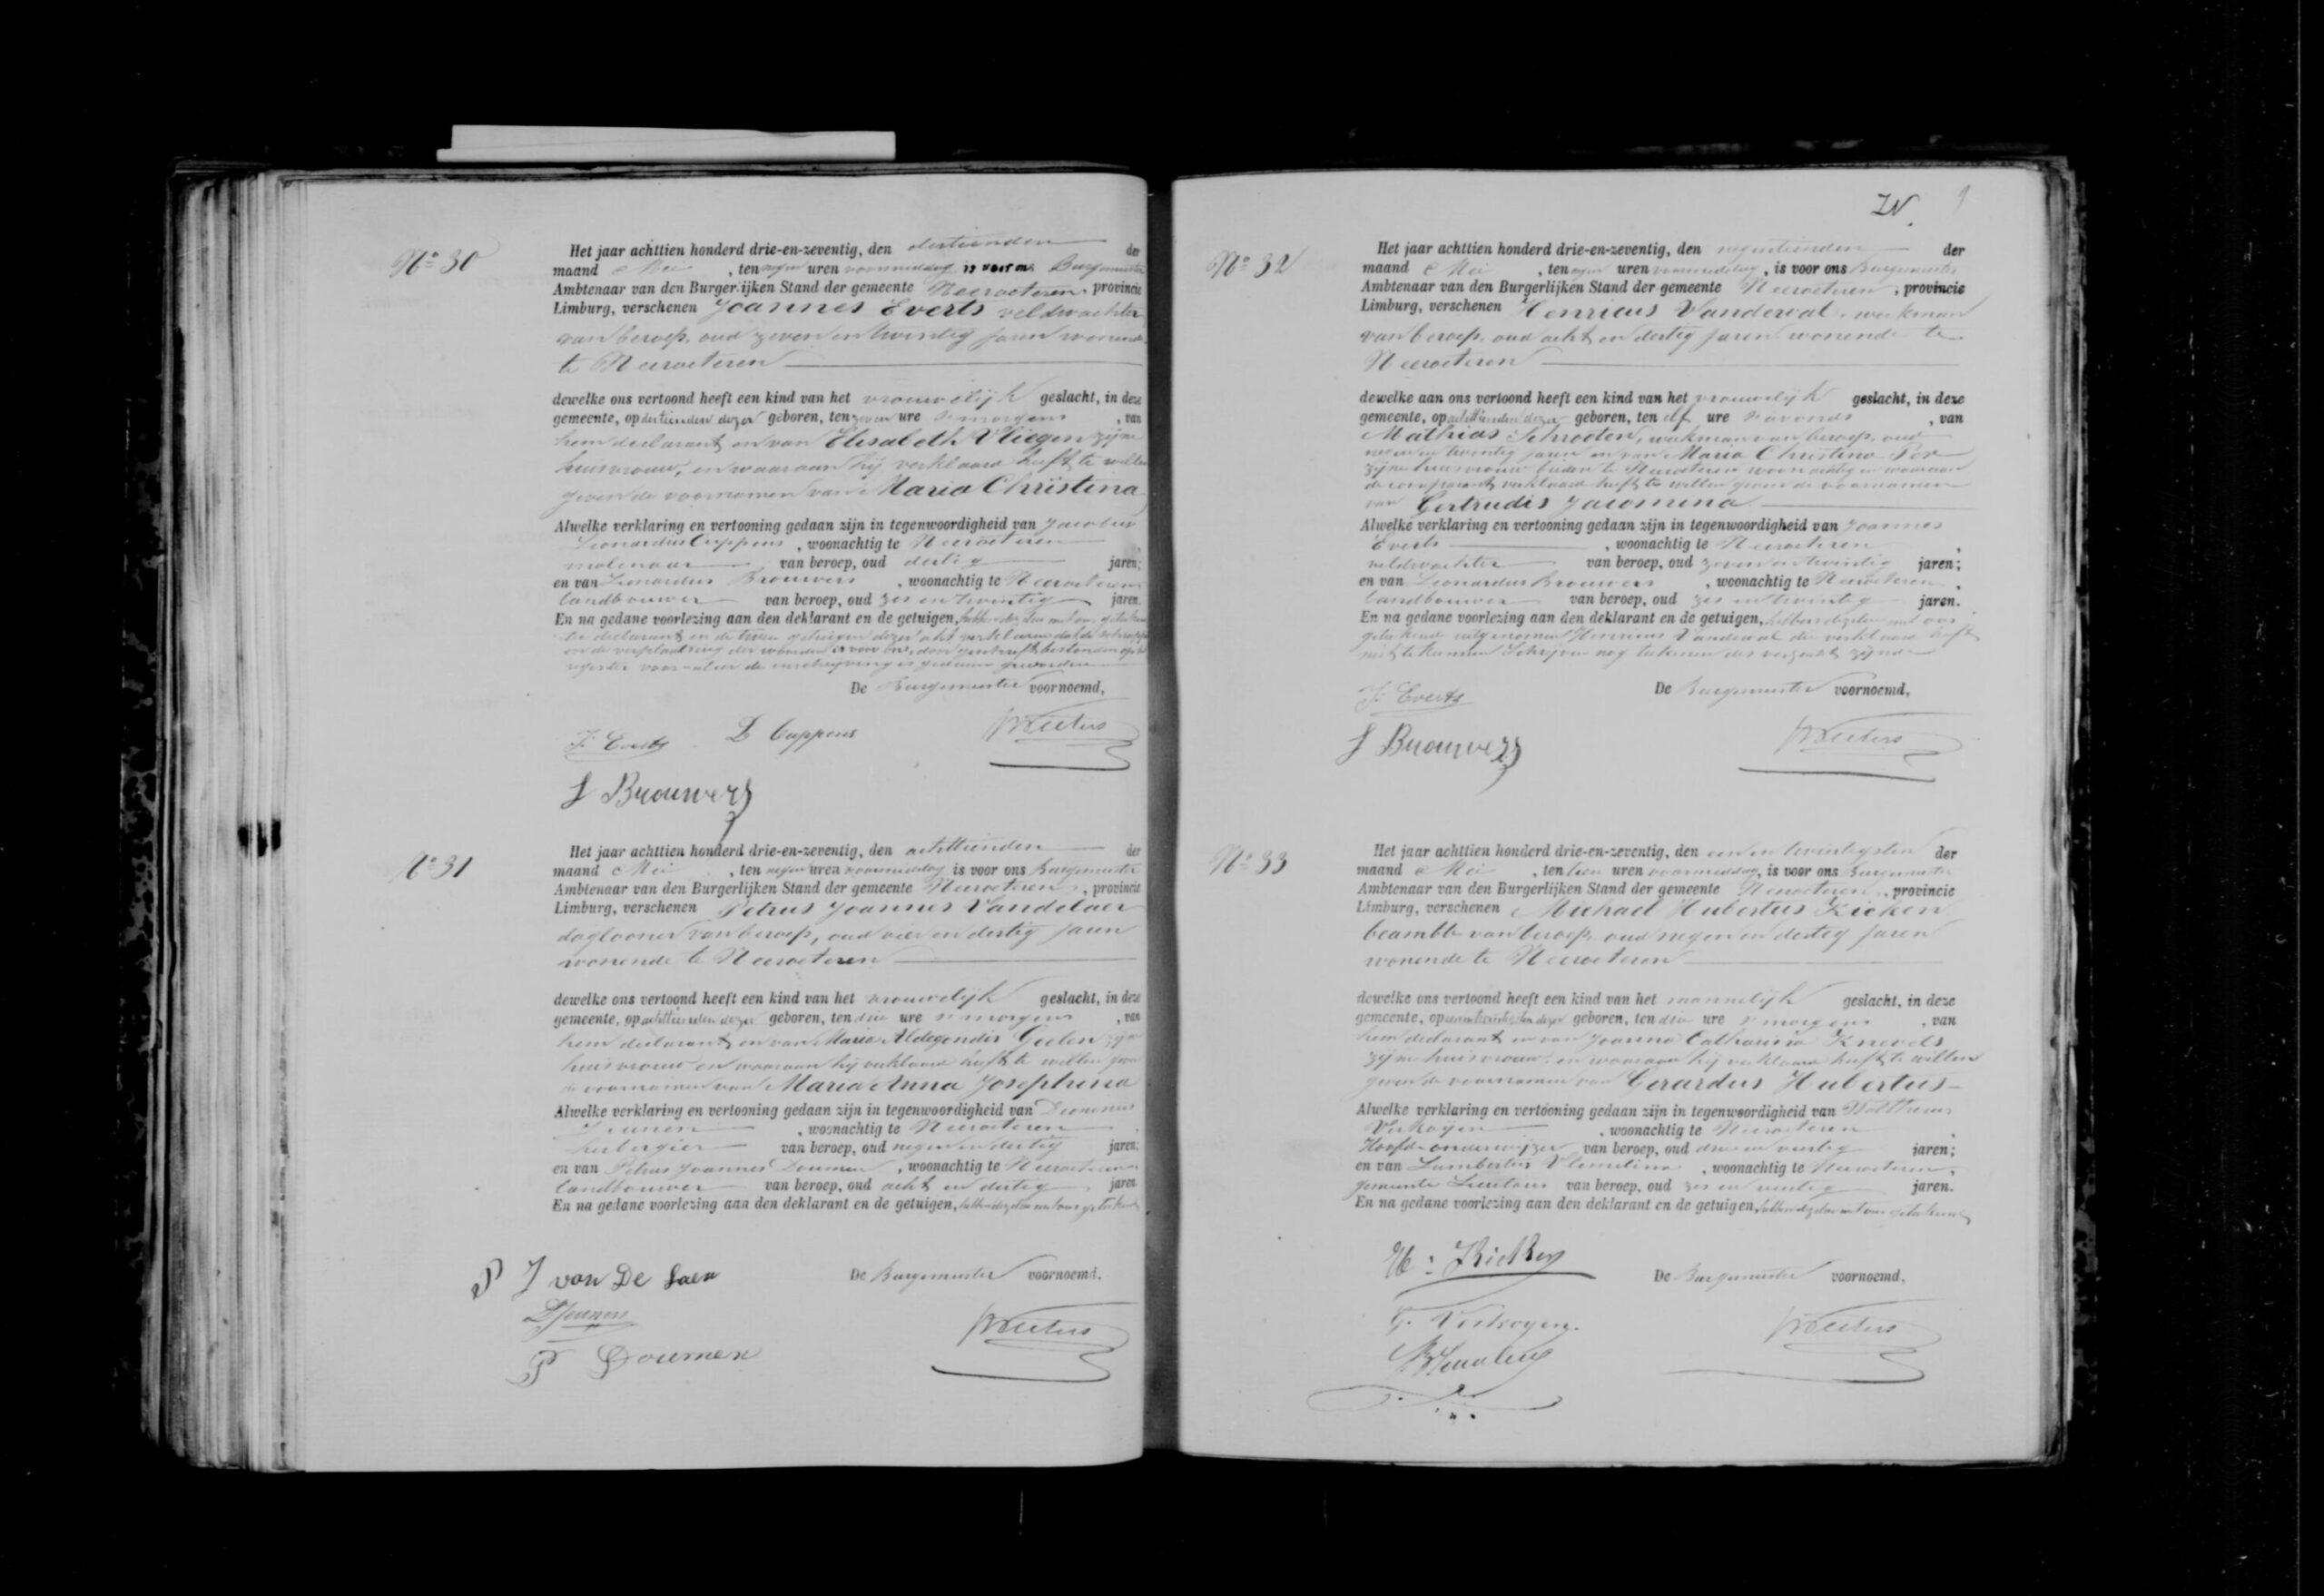 N° 30
Het jaar achttien honderd drie-en-zeventig, den dertienden der
maand Mei , ten negen uren voormiddag is voor ons Burgemeester
Ambtenaar van den Burgerlijken Stand der gemeente Neeroeteren, provincie
Limburg, verschenen Joannes Everts veldwachter
van beroep, oud zeven en twintig jaren wonende
te Neeroeteren
dewelke ons vertoond heeft een kind van het vrouwelijk geslacht, in deze
gemeente, op dertienden dezer geboren, ten zeven ure s'morgens , van
hem declarant en van Elisabeth Vliegen zijne
huisvrouw, en waaraan hij verklaard heeft te willen
geven de voornamen van Maria Christina
Alwelke verklaring en vertooning gedaan zijn in tegenwoordigheid van Jacobus
Leonardus Cuppens , woonachtig te Neeroeteren
molenaar van beroep, oud dertig jaren;
en van Leonardus Brouwers , woonachtig te Neeroeteren
landbouwer van beroep, oud zes en twintig jaren.
En na gedane voorlezing aan den deklarant en de getuigen, hebben dezelve met ons geteekend
De declarant en de twee getuigen dezer akt verklaren dat de
en de verplaatsing der woorden is voor ons, door
register voor alier de inschrijving is gedaan geworden
De Burgemeester voornoemd,
J. Everts L Cuppens
L Brouwers
N° 31
Het jaar achttien honderd drie-en-zeventig, den achttienden der
maand Mei , ten negen uren voormiddag is voor ons Burgemeester
Ambtenaar van den Burgerlijken Stand der gemeente Neeroeteren , provincie
Limburg, verschenen Petrus Joannes Vandelaer
daglooner van beroep, oud vier en dertig jaren
wonende te Neeroeteren
dewelke ons vertoond heeft een kind van het vrouwelijk geslacht, in deze
gemeente, op achttienden dezer geboren, ten drie ure s'morgens , van
hem declarant en van Maria Aldegondis Geelen zijne
huisvrouw en waaraan hij verklaard heeft te willen geven
de voornamen van Maria Anna Josephina
Alwelke verklaring en vertooning gedaan zijn in tegenwoordigheid van Dionisius
Jeunen , woonachtig te Neeroeteren
herbergier van beroep, oud negen en dertig jaren;
en van Petrus Joannes Doumen , woonachtig te Neeroeteren
landbouwer van beroep, oud acht en dertig jaren
En na gedane voorlezing aan den deklarant en de getuigen, hebben dezelve met ons geteekend
De Burgemeester voornoemd,
P J van De Laer
D Jeunen
P Doumen
IV.
N° 32
Het jaar achttien honderd drie-en-zeventig, den negentienden der
maand Mei , ten negen uren voormiddag , is voor ons Burgemeester
Ambtenaar van den Burgerlijken Stand der gemeente Neeroeteren , provincie
Limburg, verschenen Henricus Vanderval, werkman
van beroep, oud acht en dertig jaren wonende te
Neeroeteren
dewelke aan ons vertoond heeft een kind van het vrouwelijk geslacht, in deze
gemeente, op achttienden dezer geboren, ten elf ure s'avonds , van
Mathias Schrooten, werkman van beroep, oud
negen en twintig jaren en van Maria Christina
zijne huisvrouw beiden te Neeroeteren woonachtig en waaraan
de comparant verklaard heeft te willen geven de voornamen
van Gertrudis Jacomina
Alwelke verklaring en vertooning gedaan zijn in tegenwoordigheid van Joannes
Everts , woonachtig te Neeroeteren ,
veldwachter van beroep, oud zeven en twintig jaren;
en van Leonardus Brouwers , woonachtig te Neeroeteren ,
landbouwer van beroep, oud zes en twintig jaren.
En na gedane voorlezing aan den deklarant en de getuigen, hebben dezelve met ons
geteekend uitgenomen Henricus Vanderval die verklaard heeft
niet te kunnen schrijven nog teekenen des verzocht zijnde
De Burgemeester voornoemd,
J. Everts
L Brouwers
N° 33
Het jaar achttien honderd drie-en-zeventig, den een en twintigsten der
maand Mei , ten tien uren voormiddag, is voor ons Burgemeester
Ambtenaar van den Burgerlijken Stand der gemeente Neeroeteren , provincie
Limburg, verschenen Michael Hubertus Kicken
beambte van beroep, oud negen en dertig jaren
wonende te Neeroeteren
dewelke ons vertoond heeft een kind van het mannelijk geslacht, in deze
gemeente, op een en twintigsten dezer geboren, ten drie ure s'morgens , van
hem declarant en van Joanna Catharina Knevels
zijne huisvrouw en waaraan hij verklaard heeft te willen
geven de voornamen van Gerardus Hubertus
Alwelke verklaring en vertooning gedaan zijn in tegenwoordigheid van
Verkoijen , woonachtig te Neeroeteren ,
Hoofd-onderwijzer van beroep, oud drie en veertig jaren;
en van Lambertus , woonachtig te Neeroeteren ,
gemeente van beroep, oud zes en jaren.
En na gedane voorlezing aan den deklarant en de getuigen, hebben dezelve met ons geteekend
De Burgemeester voornoemd,
H: Kicken
G. Verkoyen